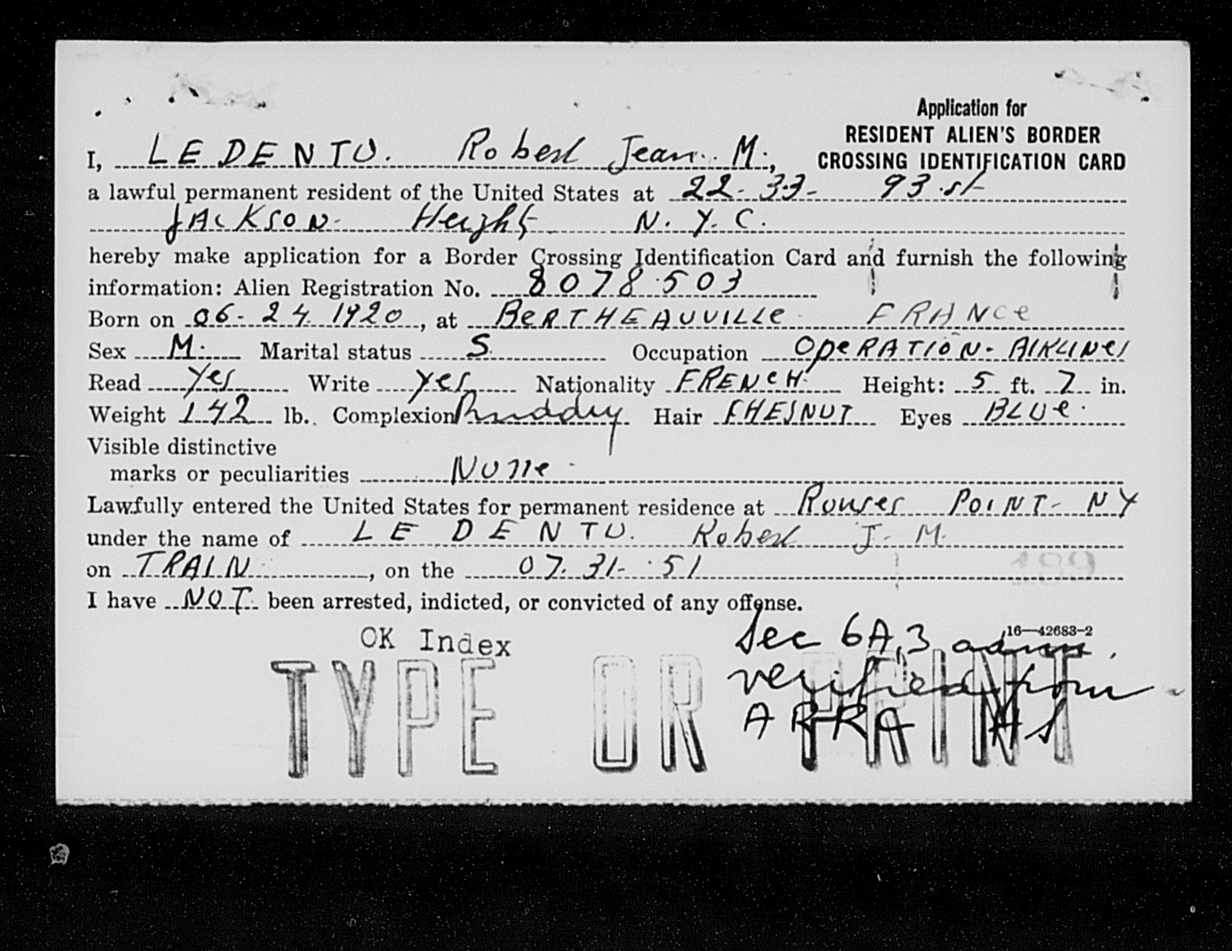 Application for
RESIDENT ALIEN'S BORDER
CROSSING IDENTIFICATION CARD
I, LE DENTU. Robert Jean. M.,
a lawful permanent resident of the United States at 22-33- 93 st
JACKSON- Height N.Y.C.
hereby make application for a Border Crossing Identification Card and furnish the following
information: Alien Registration No. 8078 503
Born on 06-24 1920, at BERTHEAUVILLE FRANCE
Sex M. Marital status S. Occupation OPERATION- AIRLINES
Read Yes Write Yes Nationality FRENCH. Height: 5 ft. 7 in.
Weight 142 lb. Complexion Ruddy Hair CHESNUT Eyes BLUE.
Visible distinctive
marks or peculiarities None.
Lawfully entered the United States for permanent residence at Rouses POINT- NY
under the name of LE DENTU. Robert J. M.
on TRAIN, on the 07-31-51
I have NOT been arrested, indicted, or convicted of any offense.
16—42683-2
OK Index
Sec 6A,3 adm.
verified from
ARRA
TYPE OR PRINT